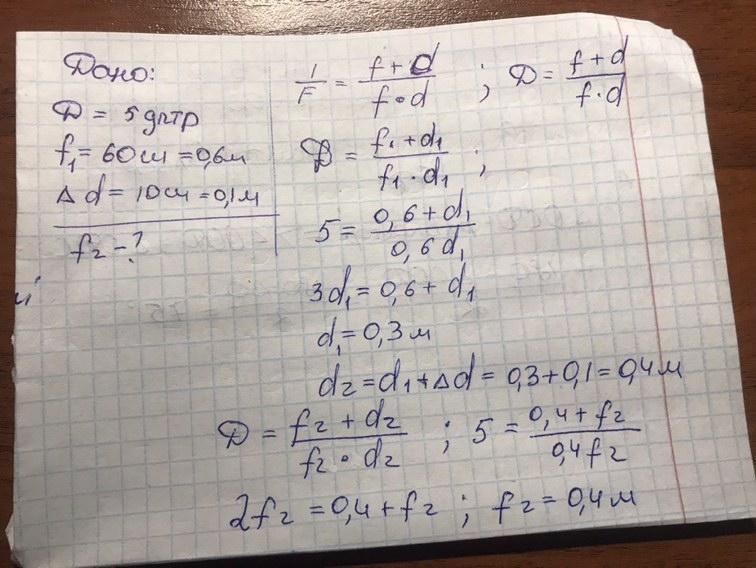 Дано:
D = 5 дптр
f₁ = 60см = 0,6м
Δd = 10см = 0,1м
f₂ - ?
1/F = (f + d)/(f · d) ; D = (f + d)/(f · d)
D = (f₁ + d₁)/(f₁ · d₁) ;
5 = (0,6 + d₁)/(0,6 d₁)
3d₁ = 0,6 + d₁
d₁ = 0,3 м
d₂ = d₁ + Δd = 0,3 + 0,1 = 0,4 м
D = (f₂ + d₂)/(f₂ · d₂) ; 5 = (0,4 + f₂)/(0,4 f₂)
2f₂ = 0,4 + f₂ ; f₂ = 0,4 м